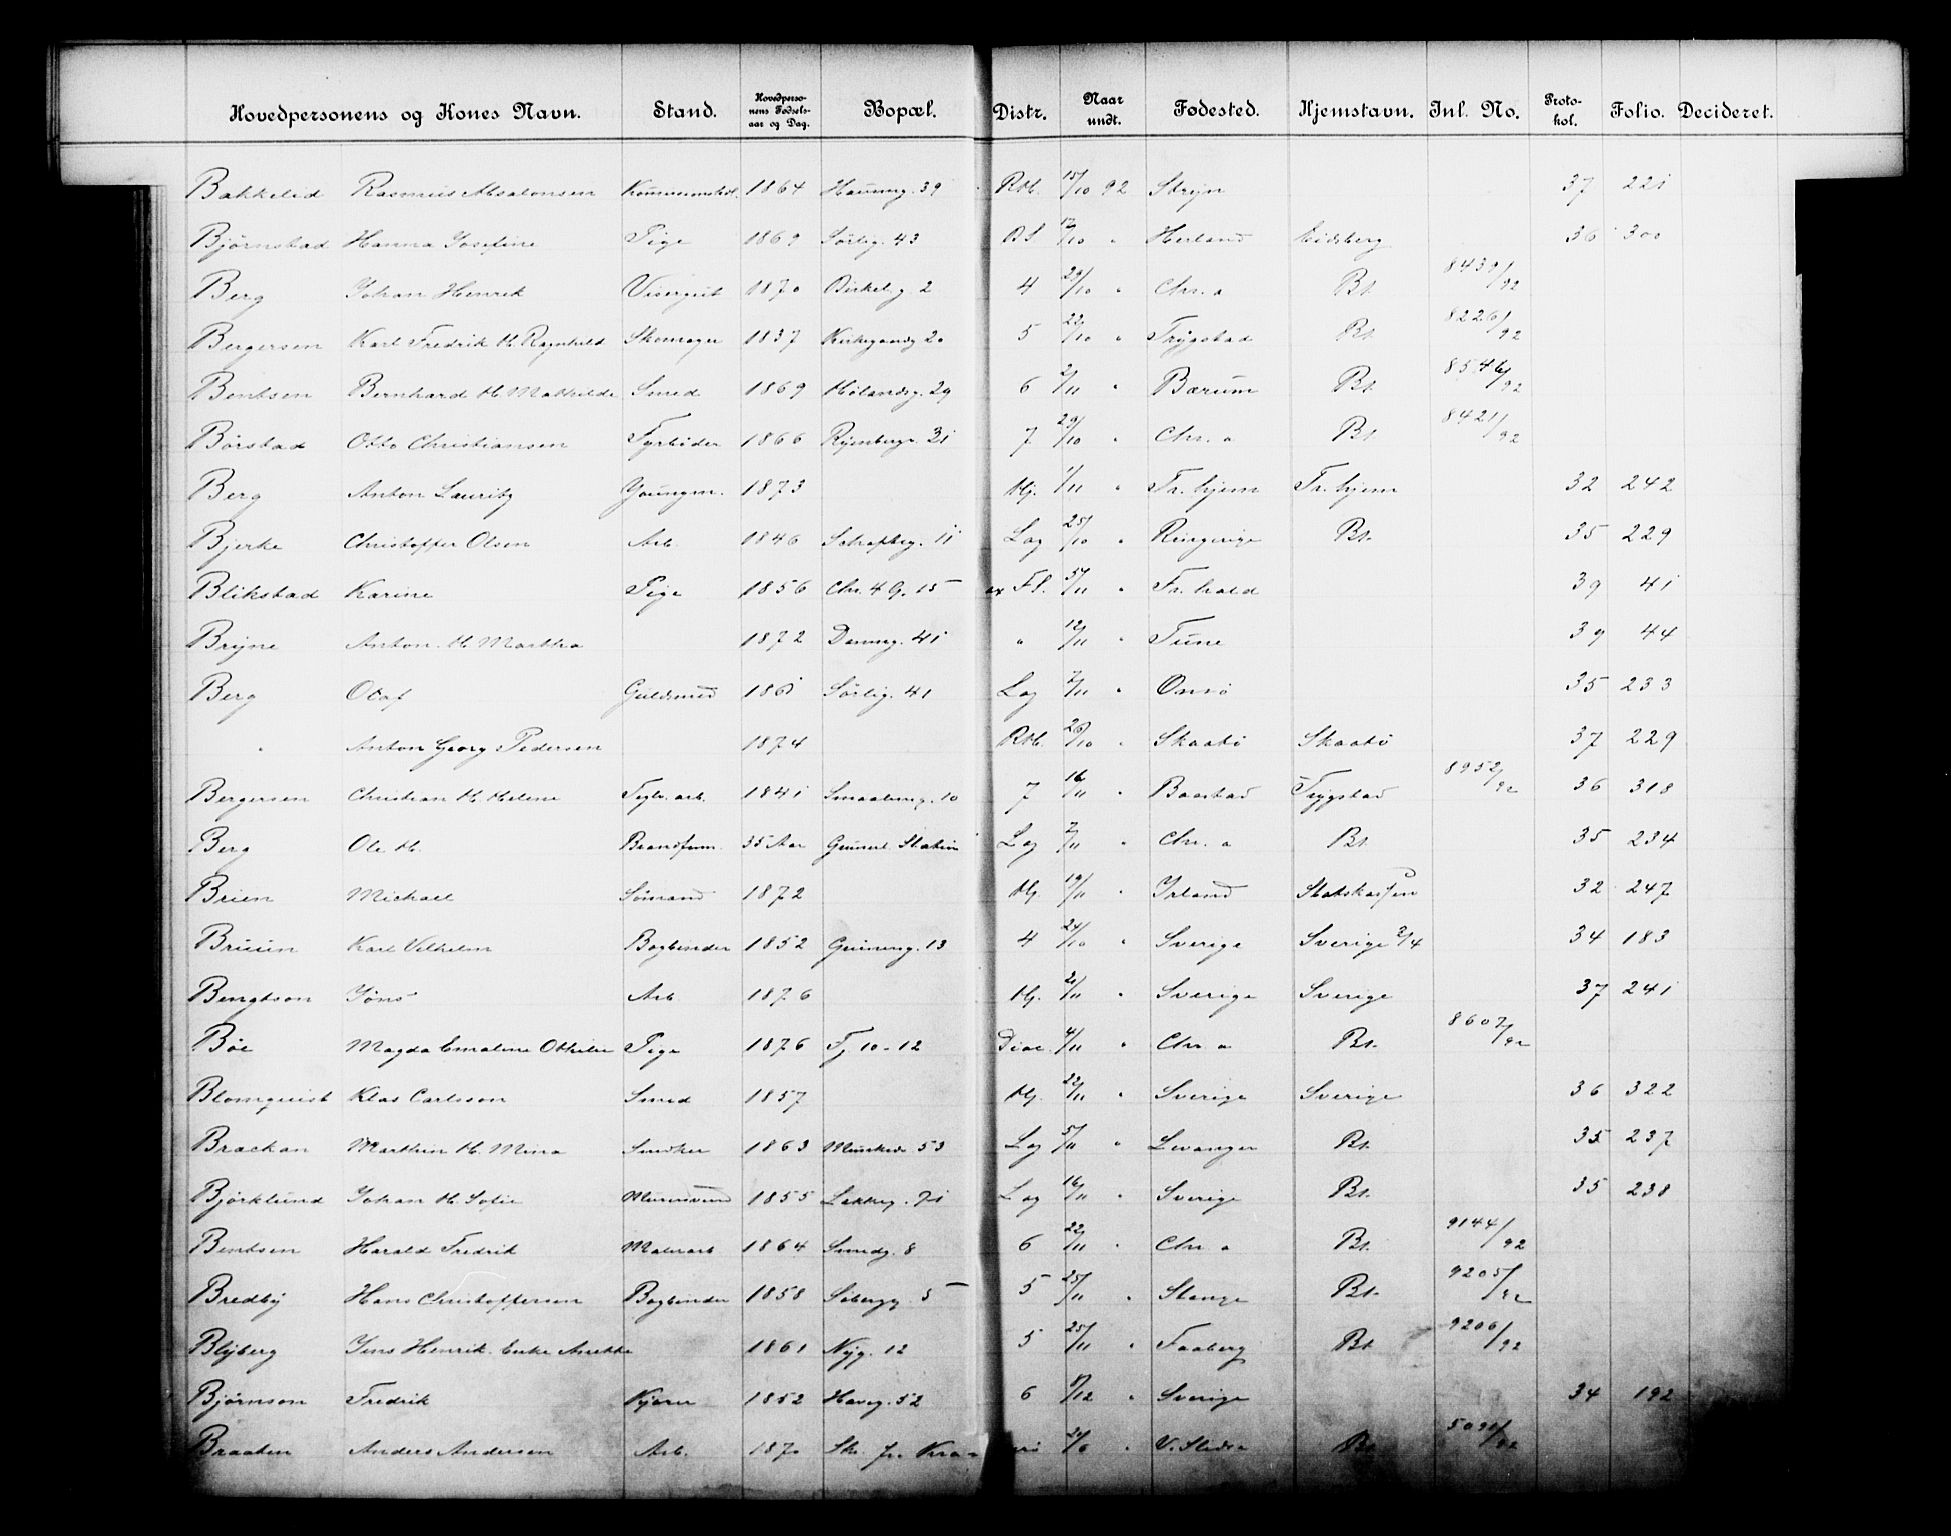 Hovedpersonens og Kones Navn. Stand. Hovedperso-nens Fødsels-aar og Dag. Bopæl. Distr. Naar undt. Fødested. Hjemstavn. Inl. No. Proto-kol. Folio. Decideret.
Bakkelid Rasmus Absalonsen 1864 Hausmg. 39 RM. 15/10 92 Stryn 37 221
Bjørnstad Hanna Josefine Pige 1869 Sørlig. 43 12/10 " Herland Eidsberg 36 300
Berg Johan Henrik Visergut 1870 Birkelg. 2 4 29/10 " Chr. a Bt. 8439/92
Bergersen Karl Fredrik M. Ragnhild Skomager 1837 Kirkegaardg 20 5 22/10 " Trygstad Bt. 8226/92
Bentsen Bernhard M. Mathilde Smed 1869 Hølandsg. 29 6 2/11 " Bærum Bt. 8546/92
Børstad Otto Christiansen Fyrbøder 1866 Rylenbergs. 31 7 29/10 " Chr. a Bt. 8421/92
Berg Anton Lauritz Youngm. 1873 Hj. 1/11 " Tr. hjem Tr. hjem 32 242
Bjerke Christoffer Olsen Arb. 1846 11 Lag 25/10 " Ringerige Bt. 35 229
Blikstad Karine Pige 1856 Chr. 4 G. 15 Fl. /11 " Fr. hald 39 41
Bryne Anton. M. Martha 1872 Dammg. 41 " 12/11 " Tune 39 44
Berg Olaf Guldsmed 1861 Sørlig. 41 Lag 2/11 " Onsø 35 233
" Anton Georg Pedersen 1874 RM. 26/10 " Skaatø Skaatø 37 229
Bergersen Christian M. Helene Teglv. arb. 1841 Smaaleneg. 10 7 16/11 " Baastad Trygstad 8952/92 36 318
Berg Ole M. 35 Aar Grunerl. Station Lag 7/11 " Chr. a Bt. 35 234
Brien Michael Sømand 1872 Hj. 19/11 " Irland Statskassen 32 247
Bruun Karl Vilhelm Bogbinder 1852 Grünerg. 13 4 24/10 " Sverige Sverige 3/4 34 183
Bengtson Jöns Arb. 1876 Hj. 2/11 " Sverige Sverige 37 241
Bøe Magda Emaline Othilie Pige 1876 10-12 Diac. 4/11 " Chr. a Bt. 8607/92
Blomquist Klas Carlsson Smed 1857 Hj. 22/11 " Sverige Sverige 36 322
Brackan Marthin M. Mina Snedker 1863 Munkedr. 53 Lag 5/11 " Levanger Bt. 35 237
Bjørklund Johan M. Sofie Murersvend 1855 Lakkeg. 71 Lag 16/11 " Sverige Bt. 35 238
Bentsen Harald Fredrik Malerarb 1864 Smedg. 8 6 22/11 " Chr. a Bt. 9144/92
Bredby Hans Christoffersen Bogbinder 1858 Søbergg. 5 5 25/11 " Stange Bt. 9205/92
Blyberg Jens Henrik. Enke Anette 1861 Nyg. 12 5 25/11 " Faaberg Bt. 9206/92
Bjørnson Fredrik Kjører 1852 Haveg. 52 6 /12 " Sverige 34 192
Braaten Anders Andersen Arb. 1870 Sk. fr. 24/6 " V. Slidre Bt.